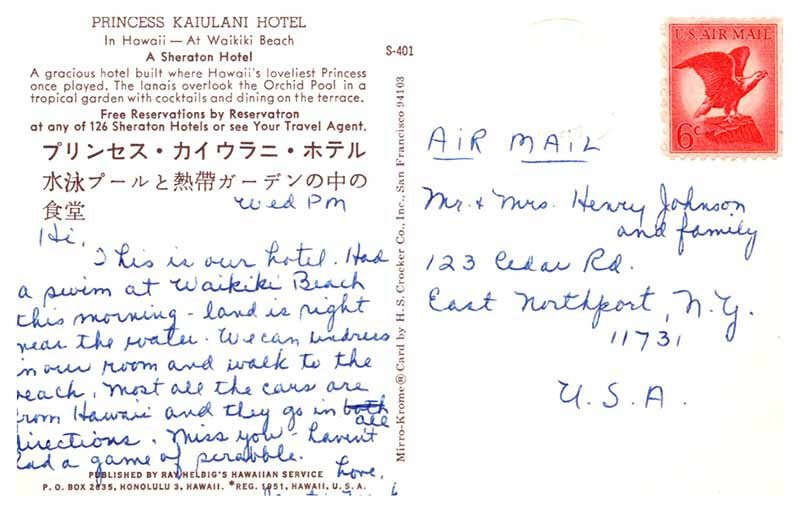 PRINCESS KAIULANI HOTEL
In Hawaii — At Waikiki Beach
A Sheraton Hotel
A gracious hotel built where Hawaii's loveliest Princess
once played. The lanais overlook the Orchid Pool in a
tropical garden with cocktails and dining on the terrace.
Free Reservations by Reservatron
at any of 126 Sheraton Hotels or see Your Travel Agent.
プリンセス・カイウラニ・ホテル
水泳プールと熱帶ガーデンの中の
食堂
Wed PM
Hi,
This is our hotel. Had
a swim at Waikiki Beach
this morning - land is right
near the water. We can undress
in our room and walk to the
beach. Most all the cars are
from Hawaii and they go in both
all
directions. Miss you - haven't
had a game of scrabble.
Love,
PUBLISHED BY RAY HELBIG'S HAWAIIAN SERVICE
P. O. BOX 2835, HONOLULU 3, HAWAII. *REG. 1951, HAWAII, U. S. A.
S-401
Mirro-Krome® Card by H. S. Crocker Co., Inc., San Francisco 94103
U.S. AIR MAIL
6c
AIR MAIL
Mr. & Mrs. Henry Johnson
and family
123 Cedar Rd.
East Northport, N.Y.
11731
U.S.A.